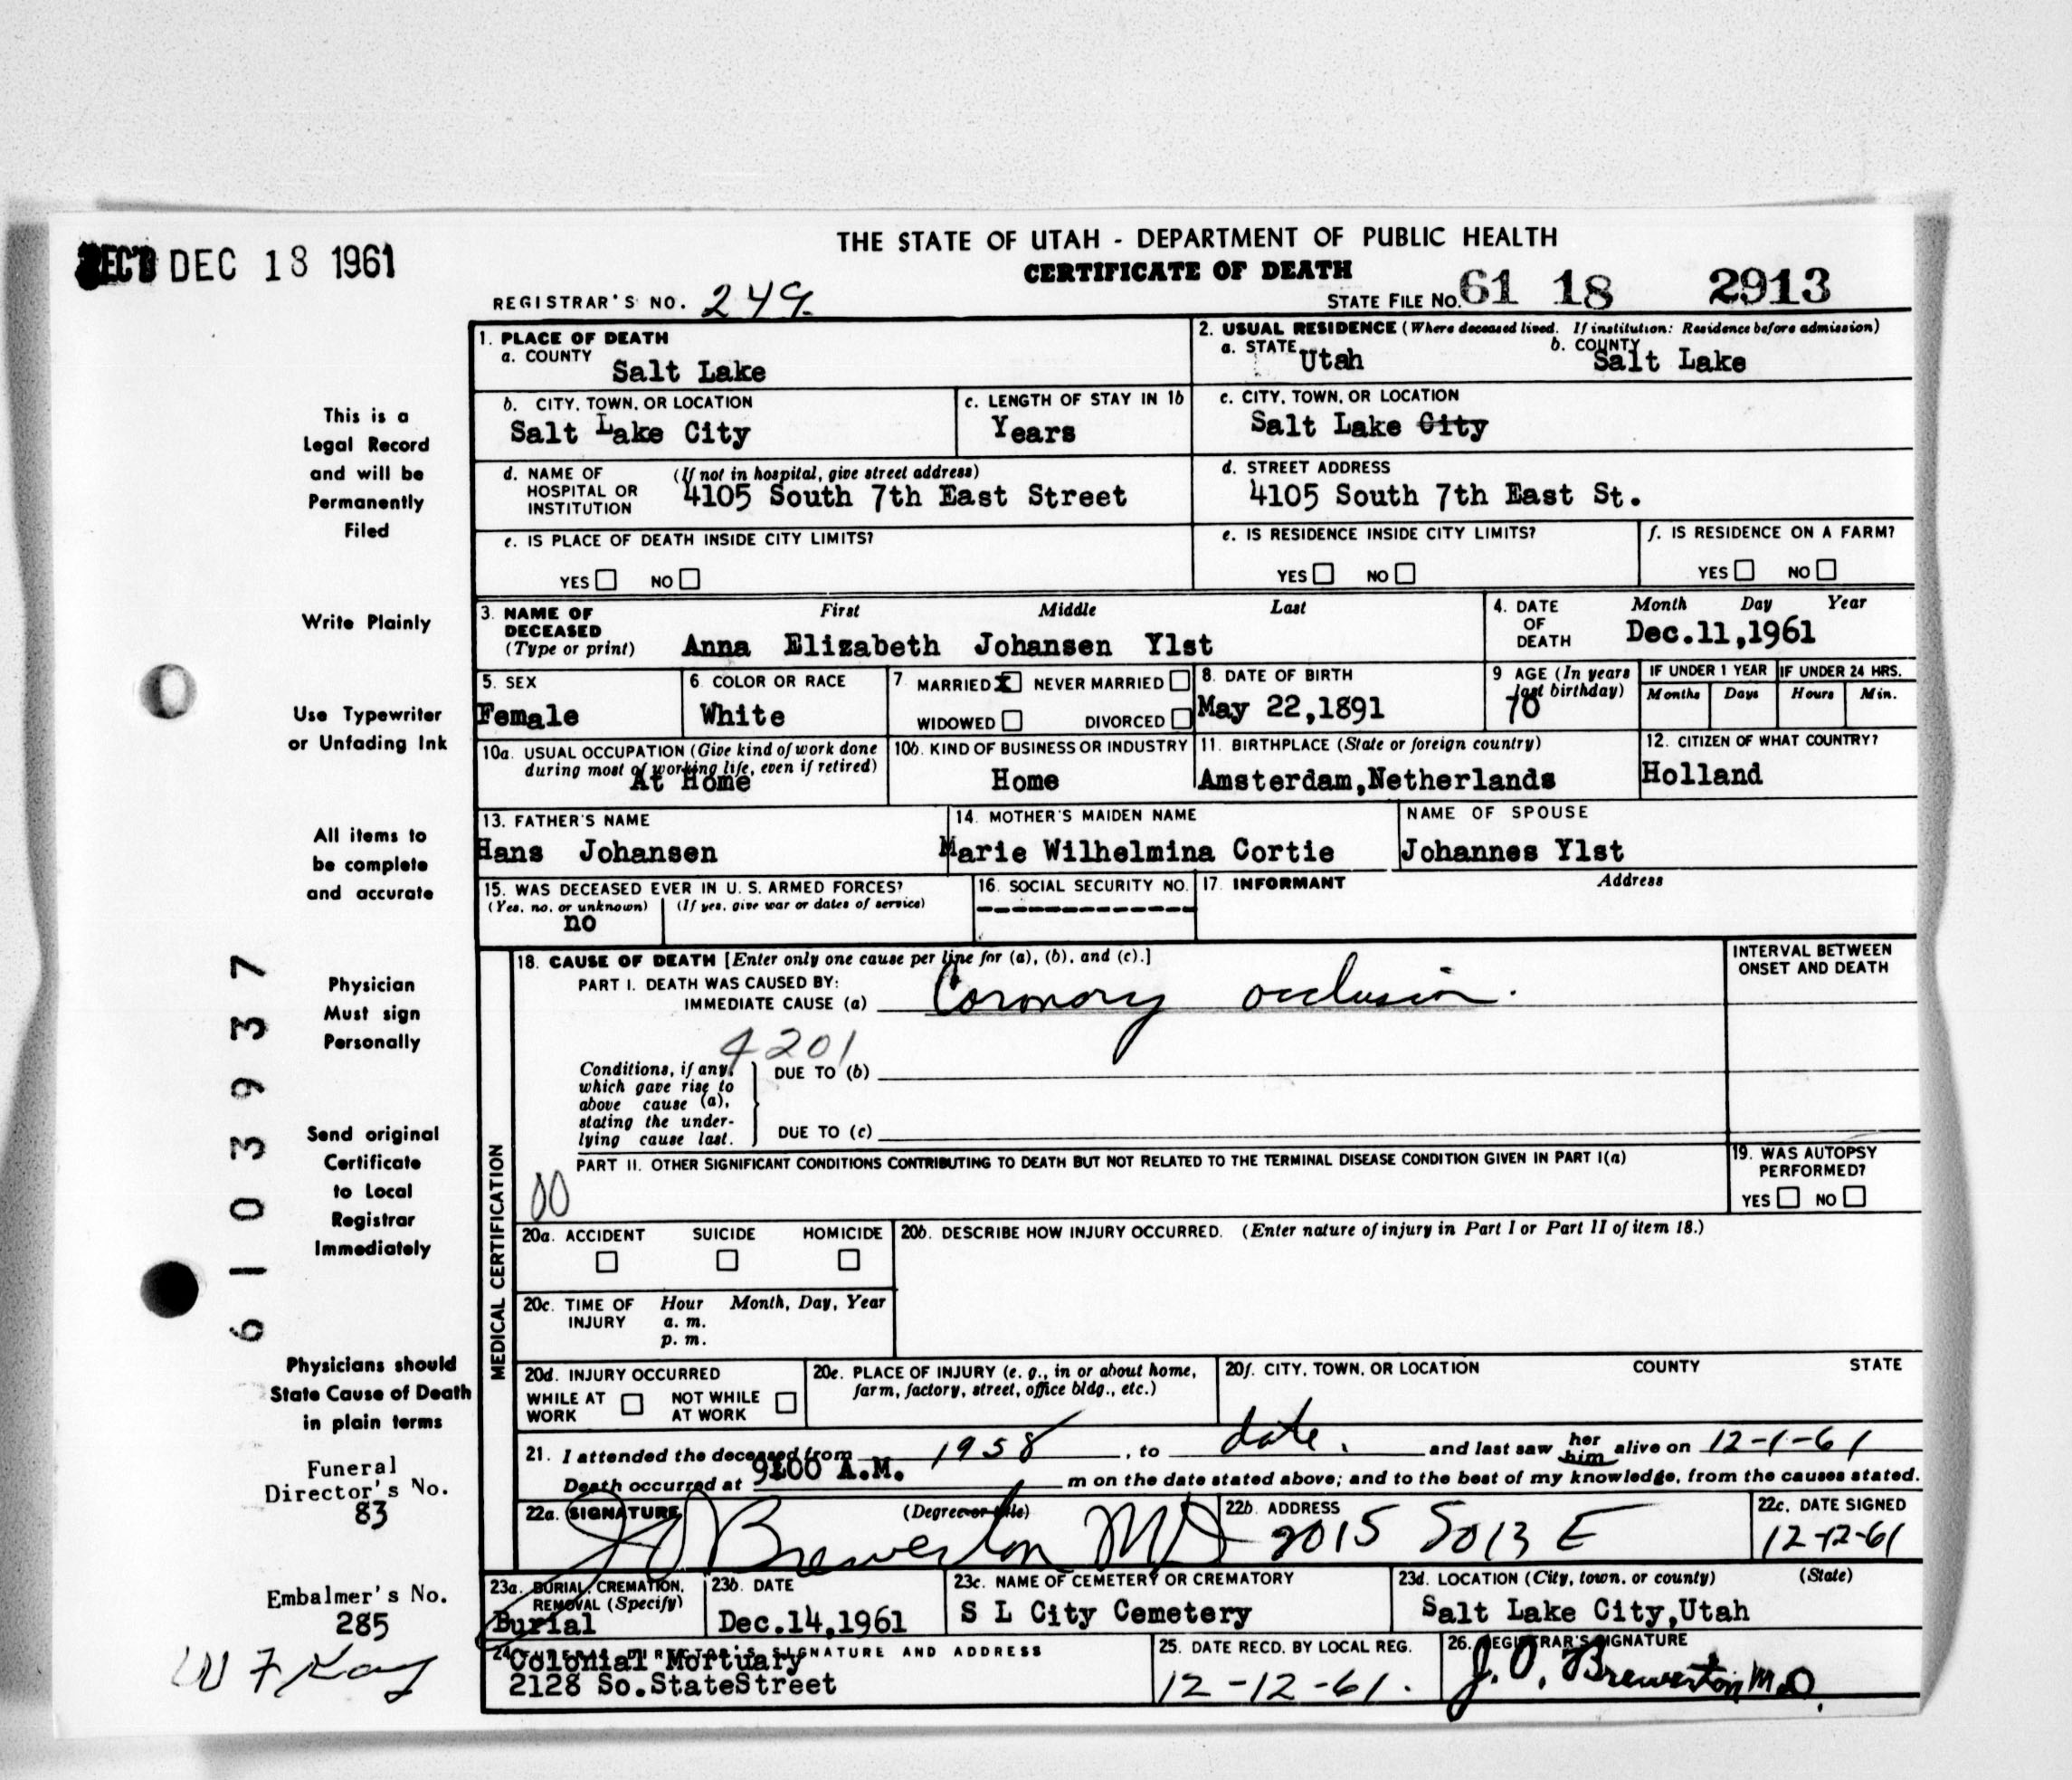 REC'D DEC 18 1961
THE STATE OF UTAH - DEPARTMENT OF PUBLIC HEALTH
CERTIFICATE OF DEATH
REGISTRAR'S NO. 249
STATE FILE NO. 61 18 2913
1. PLACE OF DEATH
a. COUNTY
Salt Lake
2. USUAL RESIDENCE (Where deceased lived. If institution: Residence before admission)
a. STATE Utah
b. COUNTY Salt Lake
b. CITY, TOWN, OR LOCATION
Salt Lake City
c. LENGTH OF STAY IN 1b
Years
c. CITY, TOWN, OR LOCATION
Salt Lake City
d. NAME OF HOSPITAL OR INSTITUTION
(If not in hospital, give street address)
4105 South 7th East Street
d. STREET ADDRESS
4105 South 7th East St.
e. IS PLACE OF DEATH INSIDE CITY LIMITS?
YES NO
e. IS RESIDENCE INSIDE CITY LIMITS?
YES NO
f. IS RESIDENCE ON A FARM?
YES NO
3. NAME OF DECEASED
(Type or print)
First Middle Last
Anna Elizabeth Johansen Ylst
4. DATE OF DEATH
Month Day Year
Dec.11,1961
5. SEX
Female
6. COLOR OR RACE
White
7. MARRIED X NEVER MARRIED
WIDOWED DIVORCED
8. DATE OF BIRTH
May 22,1891
9 AGE (In years last birthday)
70
IF UNDER 1 YEAR
Months Days
IF UNDER 24 HRS.
Hours Min.
10a. USUAL OCCUPATION (Give kind of work done
during most of working life, even if retired)
At Home
10b. KIND OF BUSINESS OR INDUSTRY
Home
11. BIRTHPLACE (State or foreign country)
Amsterdam,Netherlands
12. CITIZEN OF WHAT COUNTRY?
Holland
13. FATHER'S NAME
Hans Johansen
14. MOTHER'S MAIDEN NAME
Marie Wilhelmina Cortie
NAME OF SPOUSE
Johannes Ylst
15. WAS DECEASED EVER IN U. S. ARMED FORCES?
(Yes, no, or unknown) (If yes, give war or dates of service)
no
16. SOCIAL SECURITY NO.
17. INFORMANT Address
MEDICAL CERTIFICATION
18. CAUSE OF DEATH [Enter only one cause per line for (a), (b), and (c).]
PART I. DEATH WAS CAUSED BY:
IMMEDIATE CAUSE (a) Coronary occlusion.
INTERVAL BETWEEN
ONSET AND DEATH
4201
Conditions, if any,
which gave rise to
above cause (a),
stating the under-
lying cause last.
DUE TO (b)
DUE TO (c)
PART II. OTHER SIGNIFICANT CONDITIONS CONTRIBUTING TO DEATH BUT NOT RELATED TO THE TERMINAL DISEASE CONDITION GIVEN IN PART I(a)
00
19. WAS AUTOPSY
PERFORMED?
YES NO
20a. ACCIDENT SUICIDE HOMICIDE
20b. DESCRIBE HOW INJURY OCCURRED. (Enter nature of injury in Part I or Part II of item 18.)
20c. TIME OF INJURY
Hour Month, Day, Year
a. m.
p. m.
20d. INJURY OCCURRED
WHILE AT WORK NOT WHILE AT WORK
20e. PLACE OF INJURY (e. g., in or about home,
farm, factory, street, office bldg., etc.)
20f. CITY, TOWN, OR LOCATION COUNTY STATE
21. I attended the deceased from 1958, to date. and last saw her him alive on 12-1-61
Death occurred at 9:00 A.M. m on the date stated above; and to the best of my knowledge, from the causes stated.
22a. SIGNATURE (Degree or title)
J O Brewerton MD
22b. ADDRESS
2015 So 13 E
22c. DATE SIGNED
12-12-61
23a. BURIAL, CREMATION,
REMOVAL (Specify)
Burial
23b. DATE
Dec.14,1961
23c. NAME OF CEMETERY OR CREMATORY
S L City Cemetery
23d. LOCATION (City, town, or county) (State)
Salt Lake City,Utah
24. FUNERAL DIRECTOR'S SIGNATURE AND ADDRESS
Colonial Mortuary
2128 So.StateStreet
25. DATE RECD. BY LOCAL REG.
12-12-61.
26. REGISTRAR'S SIGNATURE
J. O. Brewerton M.D.
This is a
Legal Record
and will be
Permanently
Filed
Write Plainly
Use Typewriter
or Unfading Ink
All items to
be complete
and accurate
Physician
Must sign
Personally
Send original
Certificate
to Local
Registrar
Immediately
Physicians should
State Cause of Death
in plain terms
Funeral
Director's No.
83
Embalmer's No.
285
W F Kay
6103937